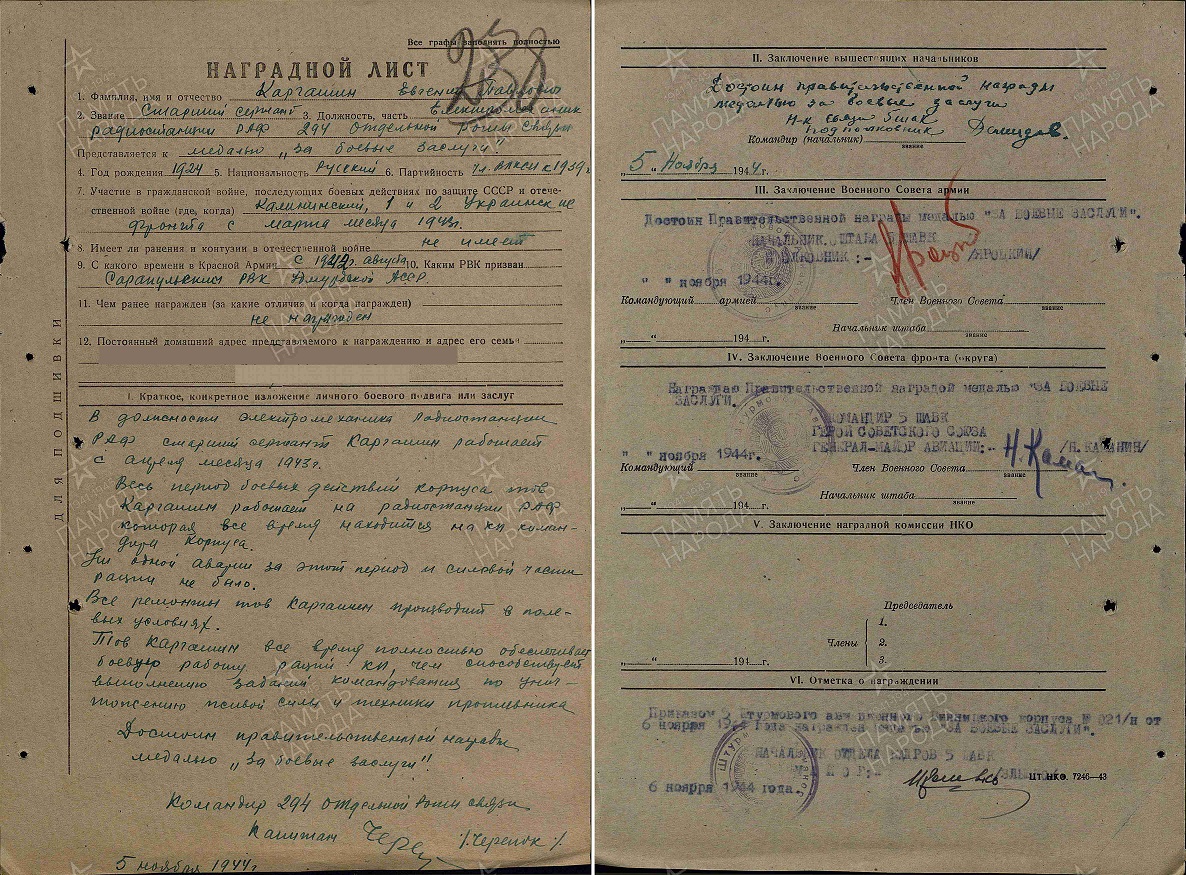 Все графы заполнять полностью
258
НАГРАДНОЙ ЛИСТ
1. Фамилия, имя и отчество Каргашин Евгений
2. Звание Старший сержант 3. Должность, часть Електромеханик
радиостанции РАФ 294 отдельной роты связи
Представляется к медалью „За боевые заслуги"
4. Год рождения 1924 5. Национальность Русский 6. Партийность Чл. ВЛКСМ с 1939г
7. Участие в гражданской войне, последующих боевых действиях по защите СССР и отече-
ственной войне (где, когда) Калининский, 1 и 2 Украинские
фронта с марта месяца 1943г.
8. Имеет ли ранения и контузии в отечественной войне не имеет
9. С какого времени в Красной Армии с 1942г. августа 10. Каким РВК призван
Сарапульским РВК Удмурдской АССР.
11. Чем ранее награжден (за какие отличия и когда награжден)
не награжден
12. Постоянный домашний адрес представляемого к награждению и адрес его семьи
ДЛЯ ПОДШИВКИ
I. Краткое, конкретное изложение личного боевого подвига или заслуг
В должности электромеханика радиостанции
РАФ старший сержант Каргашин работает
с апреля месяца 1943г.
Весь период боевых действий корпуса тов
Каргашин работает на радиостанции РАФ
которая все время находится на КП коман-
дира корпуса.
Ни одной аварии за этот период и силовой части
рации не было.
Все ремонты тов Каргашин производит в поле-
вых условиях.
Тов Каргашин все время полностью обеспечивает
боевую работу раций КП, чем способствует
выполнению заданий командования по унич-
тожению живой силы и техники противника
Достоин правительственной награды
медалью „За боевые заслуги".
Командир 294 отдельной роты связи
Капитан /Черепок/
5 ноября 1944г
II. Заключение вышестоящих начальников
Достоин правительственной награды
медалью за боевые заслуги
Н-к связи 5шак
подполковник Демидов.
Командир (начальник)
звание
„5" Ноября 1944г.
III. Заключение Военного Совета армии
Достоин Правительственной награды медалью "ЗА БОЕВЫЕ ЗАСЛУГИ".
НАЧАЛЬНИК ШТАБА 5 ШАВК
ПОЛКОВНИК :- /ЯРОЦКИЙ/
" " ноября 1944г.
Командующий армией Член Военного Совета
звание звание
Начальник штаба
„ " 194 г. звание
IV. Заключение Военного Совета фронта (округа)
Награждаю Правительственной наградой медалью "ЗА БОЕВЫЕ
ЗАСЛУГИ.
КОМАНДИР 5 ШАВК
ГЕРОЙ СОВЕТСКОГО СОЮЗА
ГЕНЕРАЛ-МАЙОР АВИАЦИИ:- /Н.КАМАНИН/
" " ноября 1944г.
Командующий Член Военного Совета
звание звание
Начальник штаба
„ " 194 г. звание
V. Заключение наградной комиссии НКО
Председатель
1.
Члены 2.
3.
„ " 194 г.
VI. Отметка о награждении
Приказом 5 Штурмового авиационного Винницкого корпуса № 021/н от
6 ноября 1944 года награжден медалью "ЗА БОЕВЫЕ ЗАСЛУГИ".
НАЧАЛЬНИК ОТДЕЛА КАДРОВ 5 ШАВК
МАЙОР:-
6 ноября 1944 года.
ЦТ. НКО. 7246—43
ПАМЯТЬ НАРОДА